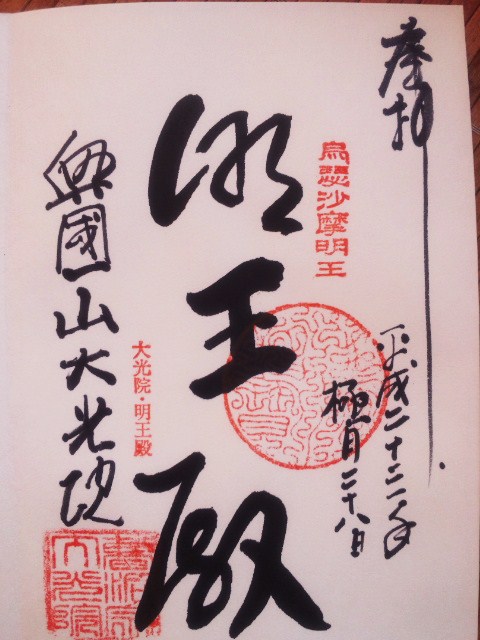 奉拝
烏瑟沙摩明王
平成二十二年
極月二十八日
明王殿
大光院・明王殿
興國山大光院